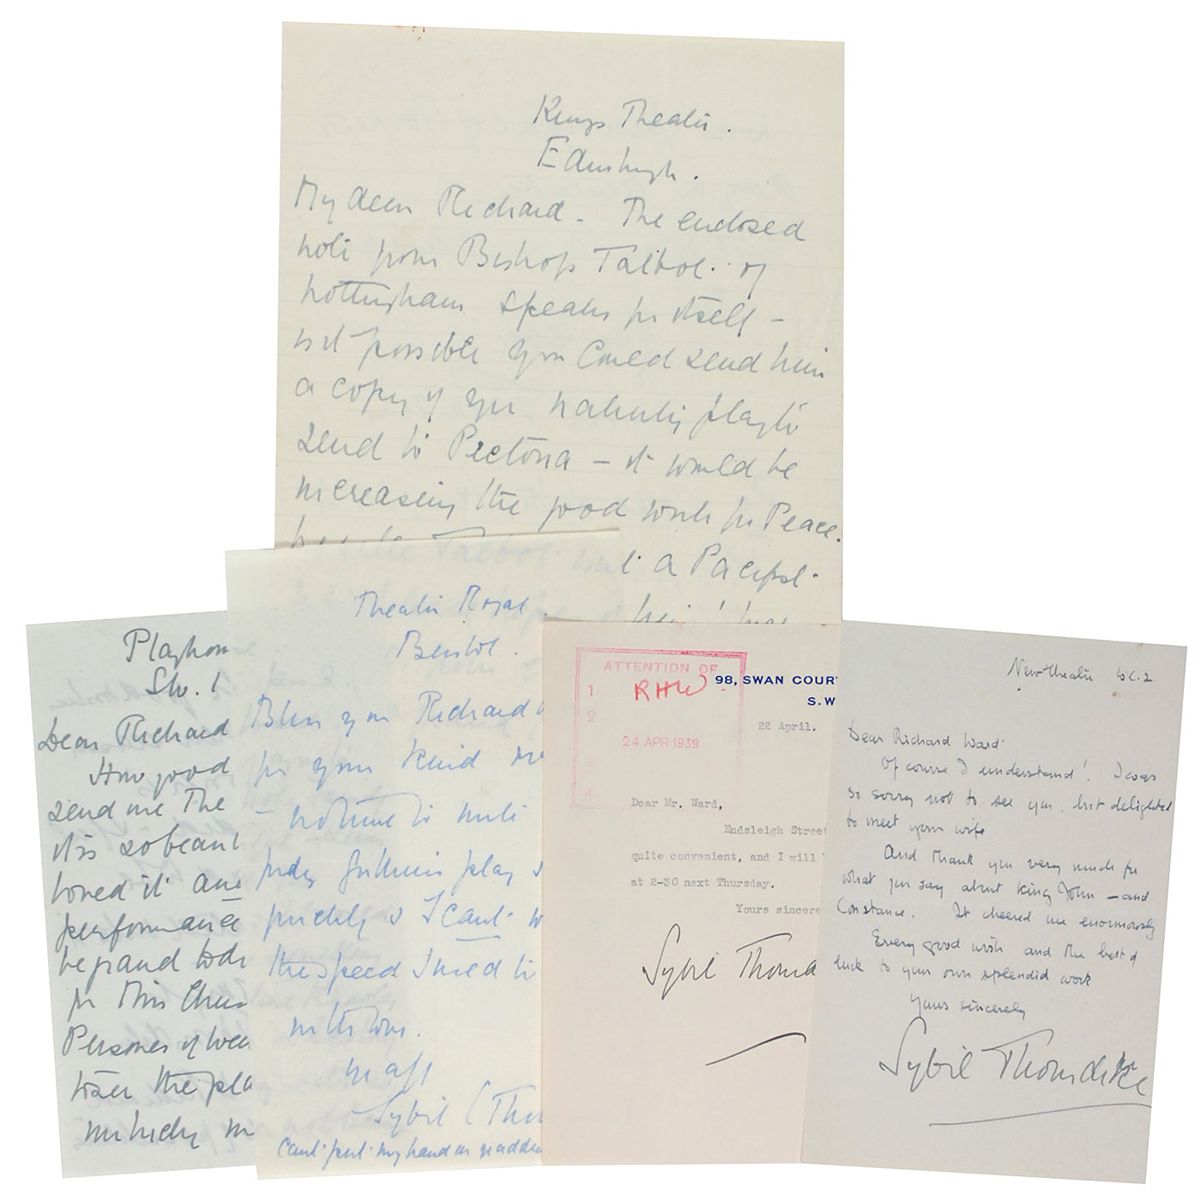 Kings Theatre.
Edinburgh.
My dear Richard - The enclosed
note from Bishop Talbot of
Nottingham speaks for itself -
is it possible you could send him
a copy of your nativity play to
send to Pretoria - it would be
increasing the good work for Peace.
Talbot isn't a Pacifist.
Theatre Royal.
Bristol.
Bless you Richard
for your kind
- no time to write
play
quickly & I can't
the speed I used to
with love.
Sybil (Thor
Can't put my hand on
Playhou
Dear Richard
How good
send me The
it is so beaut
loved it and
performance
be grand
for this
Persones of
the pla
ATTENTION OF
RHW
1
2
24 APR 1939
3
4
98, SWAN COUR
S.W
22 April.
Dear Mr. Ward,
Endsleigh Street
quite convenient, and I will
at 2-30 next Thursday.
Yours sincere
Sybil Thornd
New Theatre W.C.2
Dear Richard Ward
Of course I understand! I was
so sorry not to see you, but delighted
to meet your wife
And thank you very much for
what you say about King John - and
Constance. It cheered me enormously
Every good wish and the best of
luck to your own splendid work
Yours sincerely
Sybil Thorndike